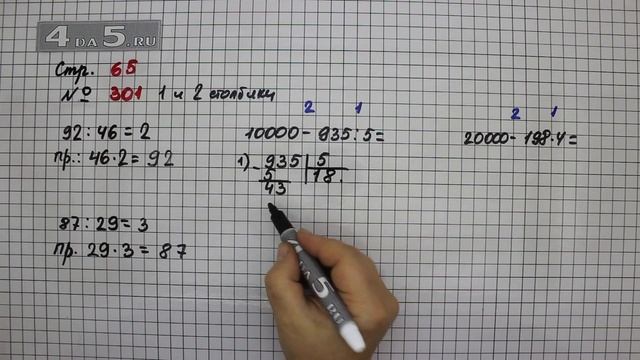 4DA5.RU
Стр. 65
№ 301 1 и 2 столбики
92 : 46 = 2
пр.: 46 · 2 = 92
87 : 29 = 3
пр. 29 · 3 = 87
2 1
10000 - 935 : 5 =
1) - 935 | 5
5 | 18.
43
2 1
20000 - 198 · 4 =
4DA5.RU